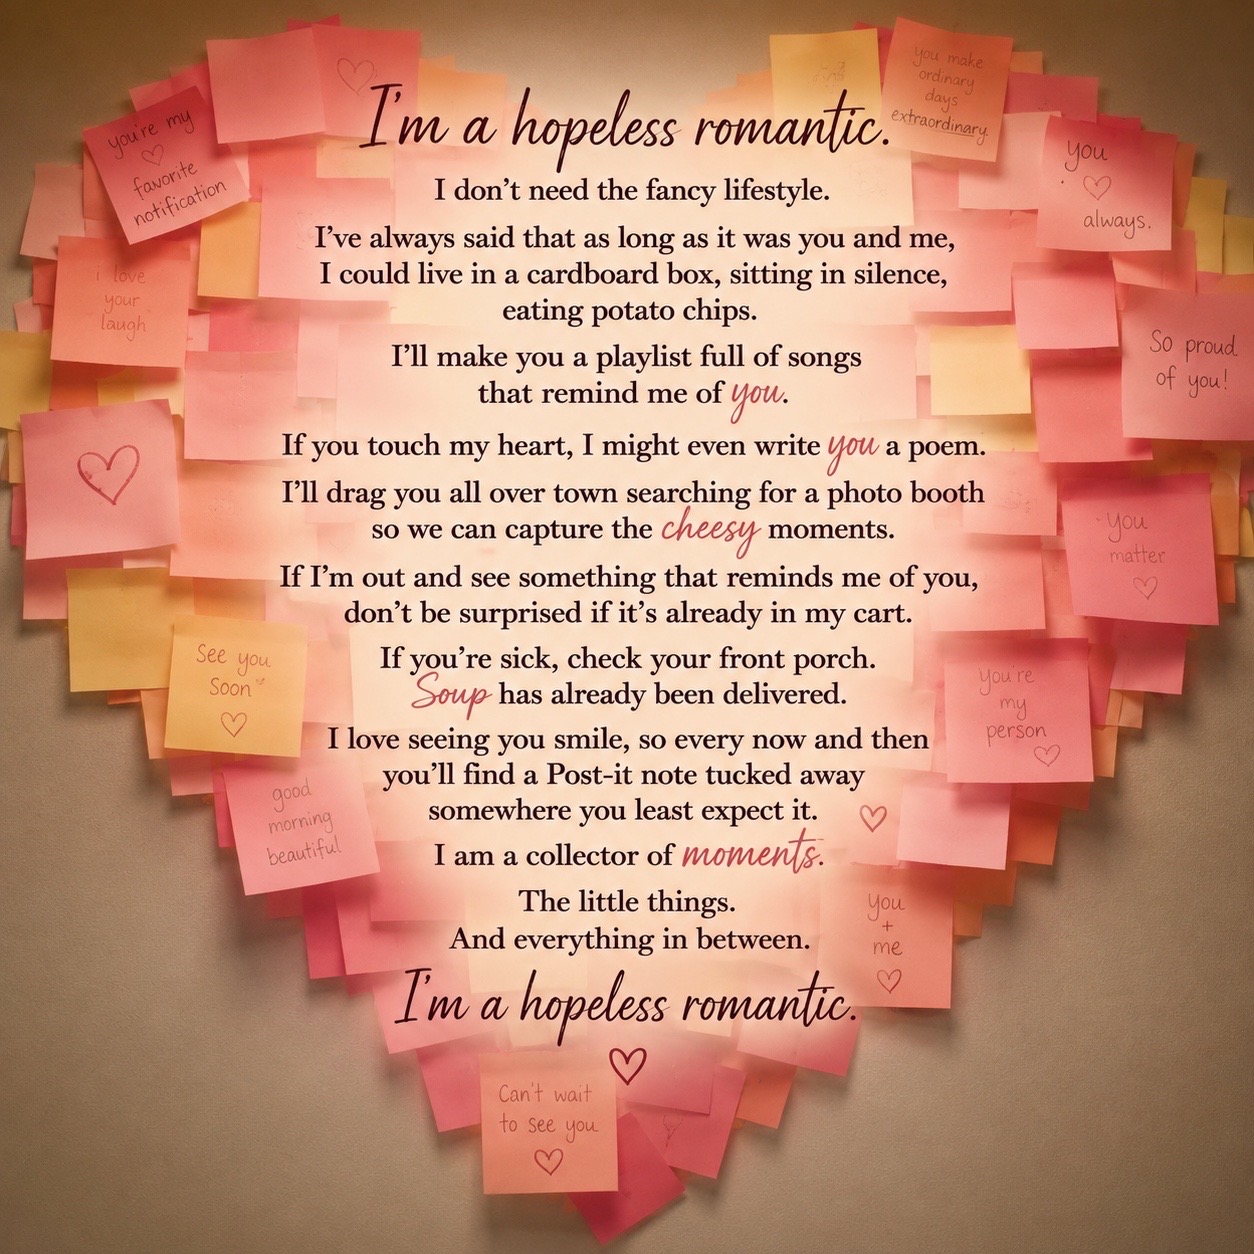 I'm a hopeless romantic.
I don't need the fancy lifestyle.
I've always said that as long as it was you and me,
I could live in a cardboard box, sitting in silence,
eating potato chips.
I'll make you a playlist full of songs
that remind me of you.
If you touch my heart, I might even write you a poem.
I'll drag you all over town searching for a photo booth
so we can capture the cheesy moments.
If I'm out and see something that reminds me of you,
don't be surprised if it's already in my cart.
If you're sick, check your front porch.
Soup has already been delivered.
I love seeing you smile, so every now and then
you'll find a Post-it note tucked away
somewhere you least expect it.
I am a collector of moments.
The little things.
And everything in between.
I'm a hopeless romantic.
you're my
favorite
notification
i love
your
laugh
See you
Soon
good
morning
beautiful
Can't wait
to see you
you make
ordinary
days
extraordinary.
you
always.
So proud
of you!
You
matter
you're
my
person
You
+
me